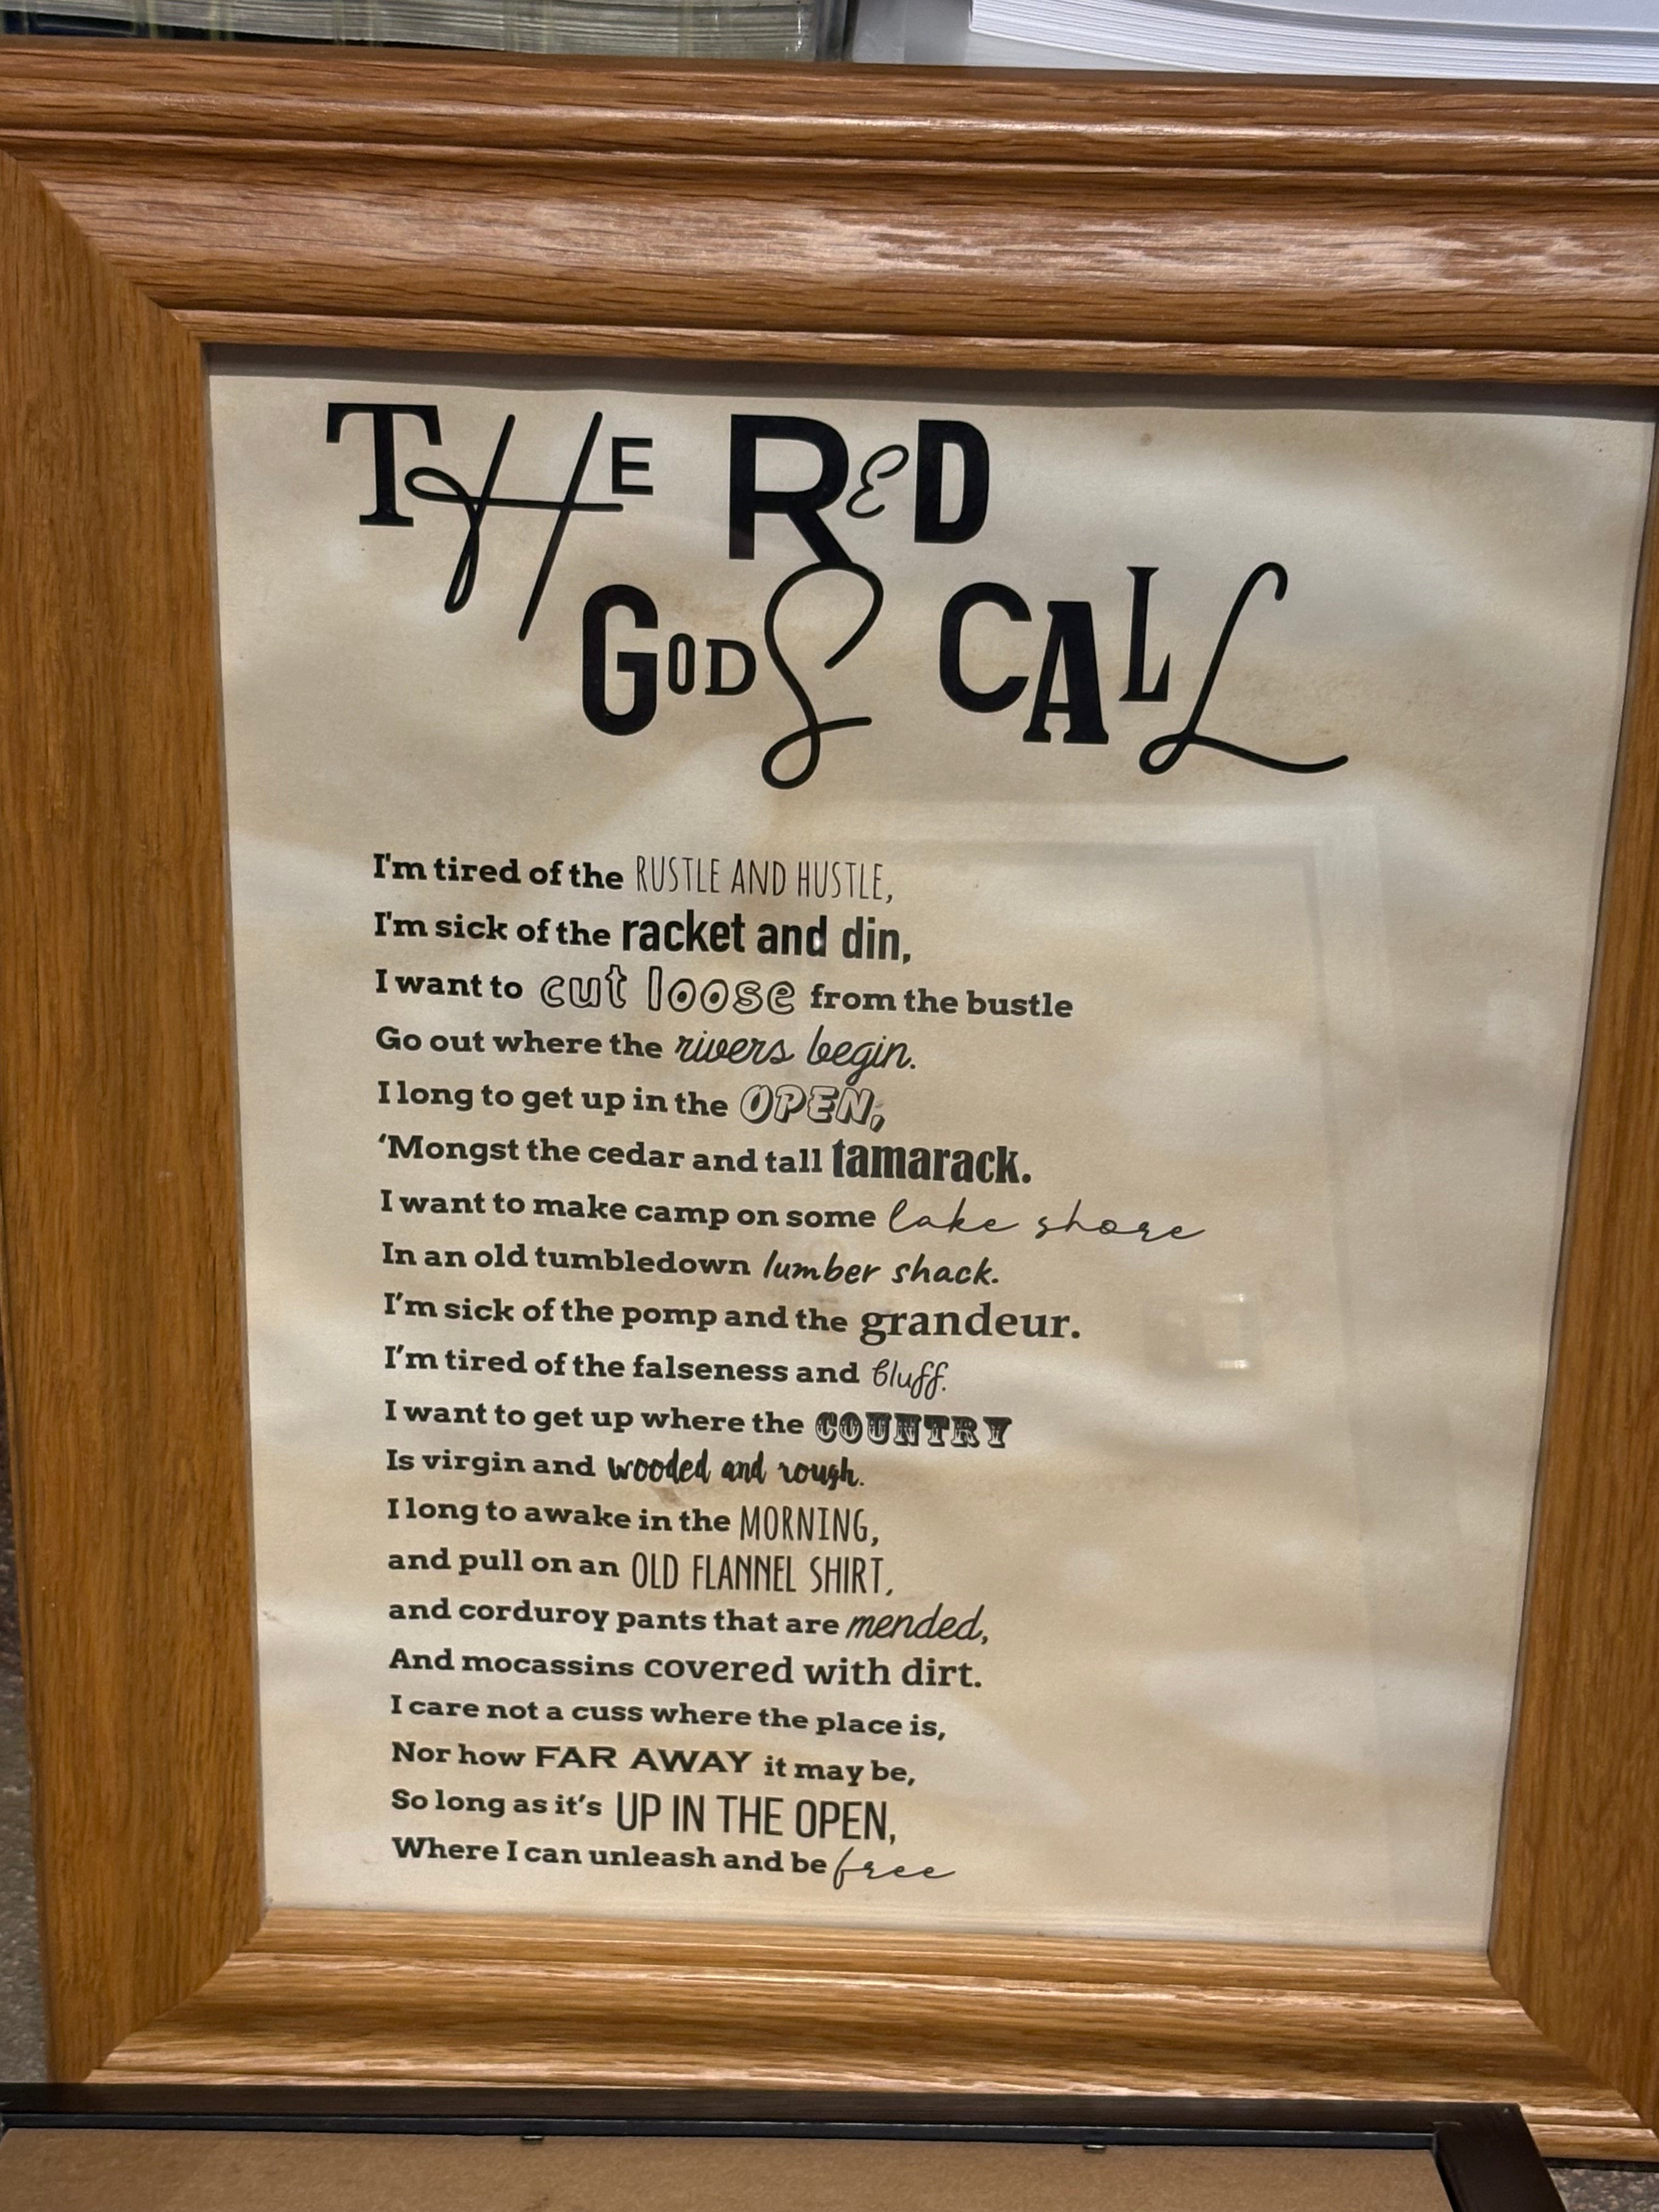 THE RED
GODS CALL
I'm tired of the RUSTLE AND HUSTLE,
I'm sick of the racket and din,
I want to cut loose from the bustle
Go out where the rivers begin.
I long to get up in the OPEN,
‘Mongst the cedar and tall tamarack.
I want to make camp on some lake shore
In an old tumbledown lumber shack.
I’m sick of the pomp and the grandeur.
I’m tired of the falseness and bluff.
I want to get up where the COUNTRY
Is virgin and wooded and rough.
I long to awake in the MORNING,
and pull on an OLD FLANNEL SHIRT,
and corduroy pants that are mended,
And mocassins covered with dirt.
I care not a cuss where the place is,
Nor how FAR AWAY it may be,
So long as it’s UP IN THE OPEN,
Where I can unleash and be free